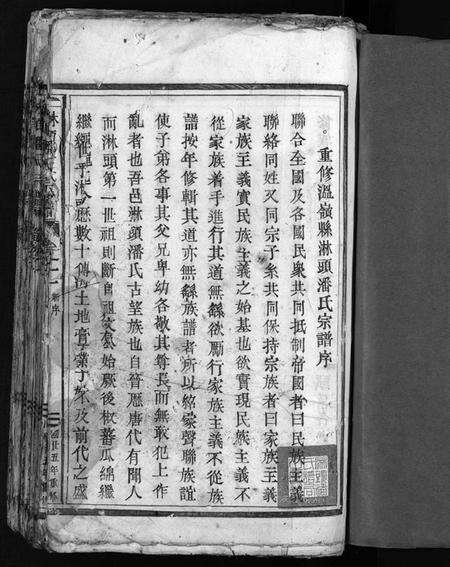 重修溫嶺縣淋頭潘氏宗譜序
聯合全國及各國民衆共同抵制帝國者曰民族主義
聯絡同姓又同宗子系共同保持宗族者曰家族主義
家族主義實民族主義之始基也欲實現民族主義不
從家族着手進行其道無繇欲勵行家族主義不從族
譜按年修輯其道亦無繇族譜者所以綜家聲聯族誼
使子弟各事其父兄卑幼各敬其尊長而無敢犯上作
亂者也吾邑淋頭潘氏古望族也自晉歷唐代有聞人
而淋頭第一世祖則斷自祖始厥後椒蕃瓜綿繼
繼繩歷數十傳土地膏業丁衆及前代之盛
新序
五年重修